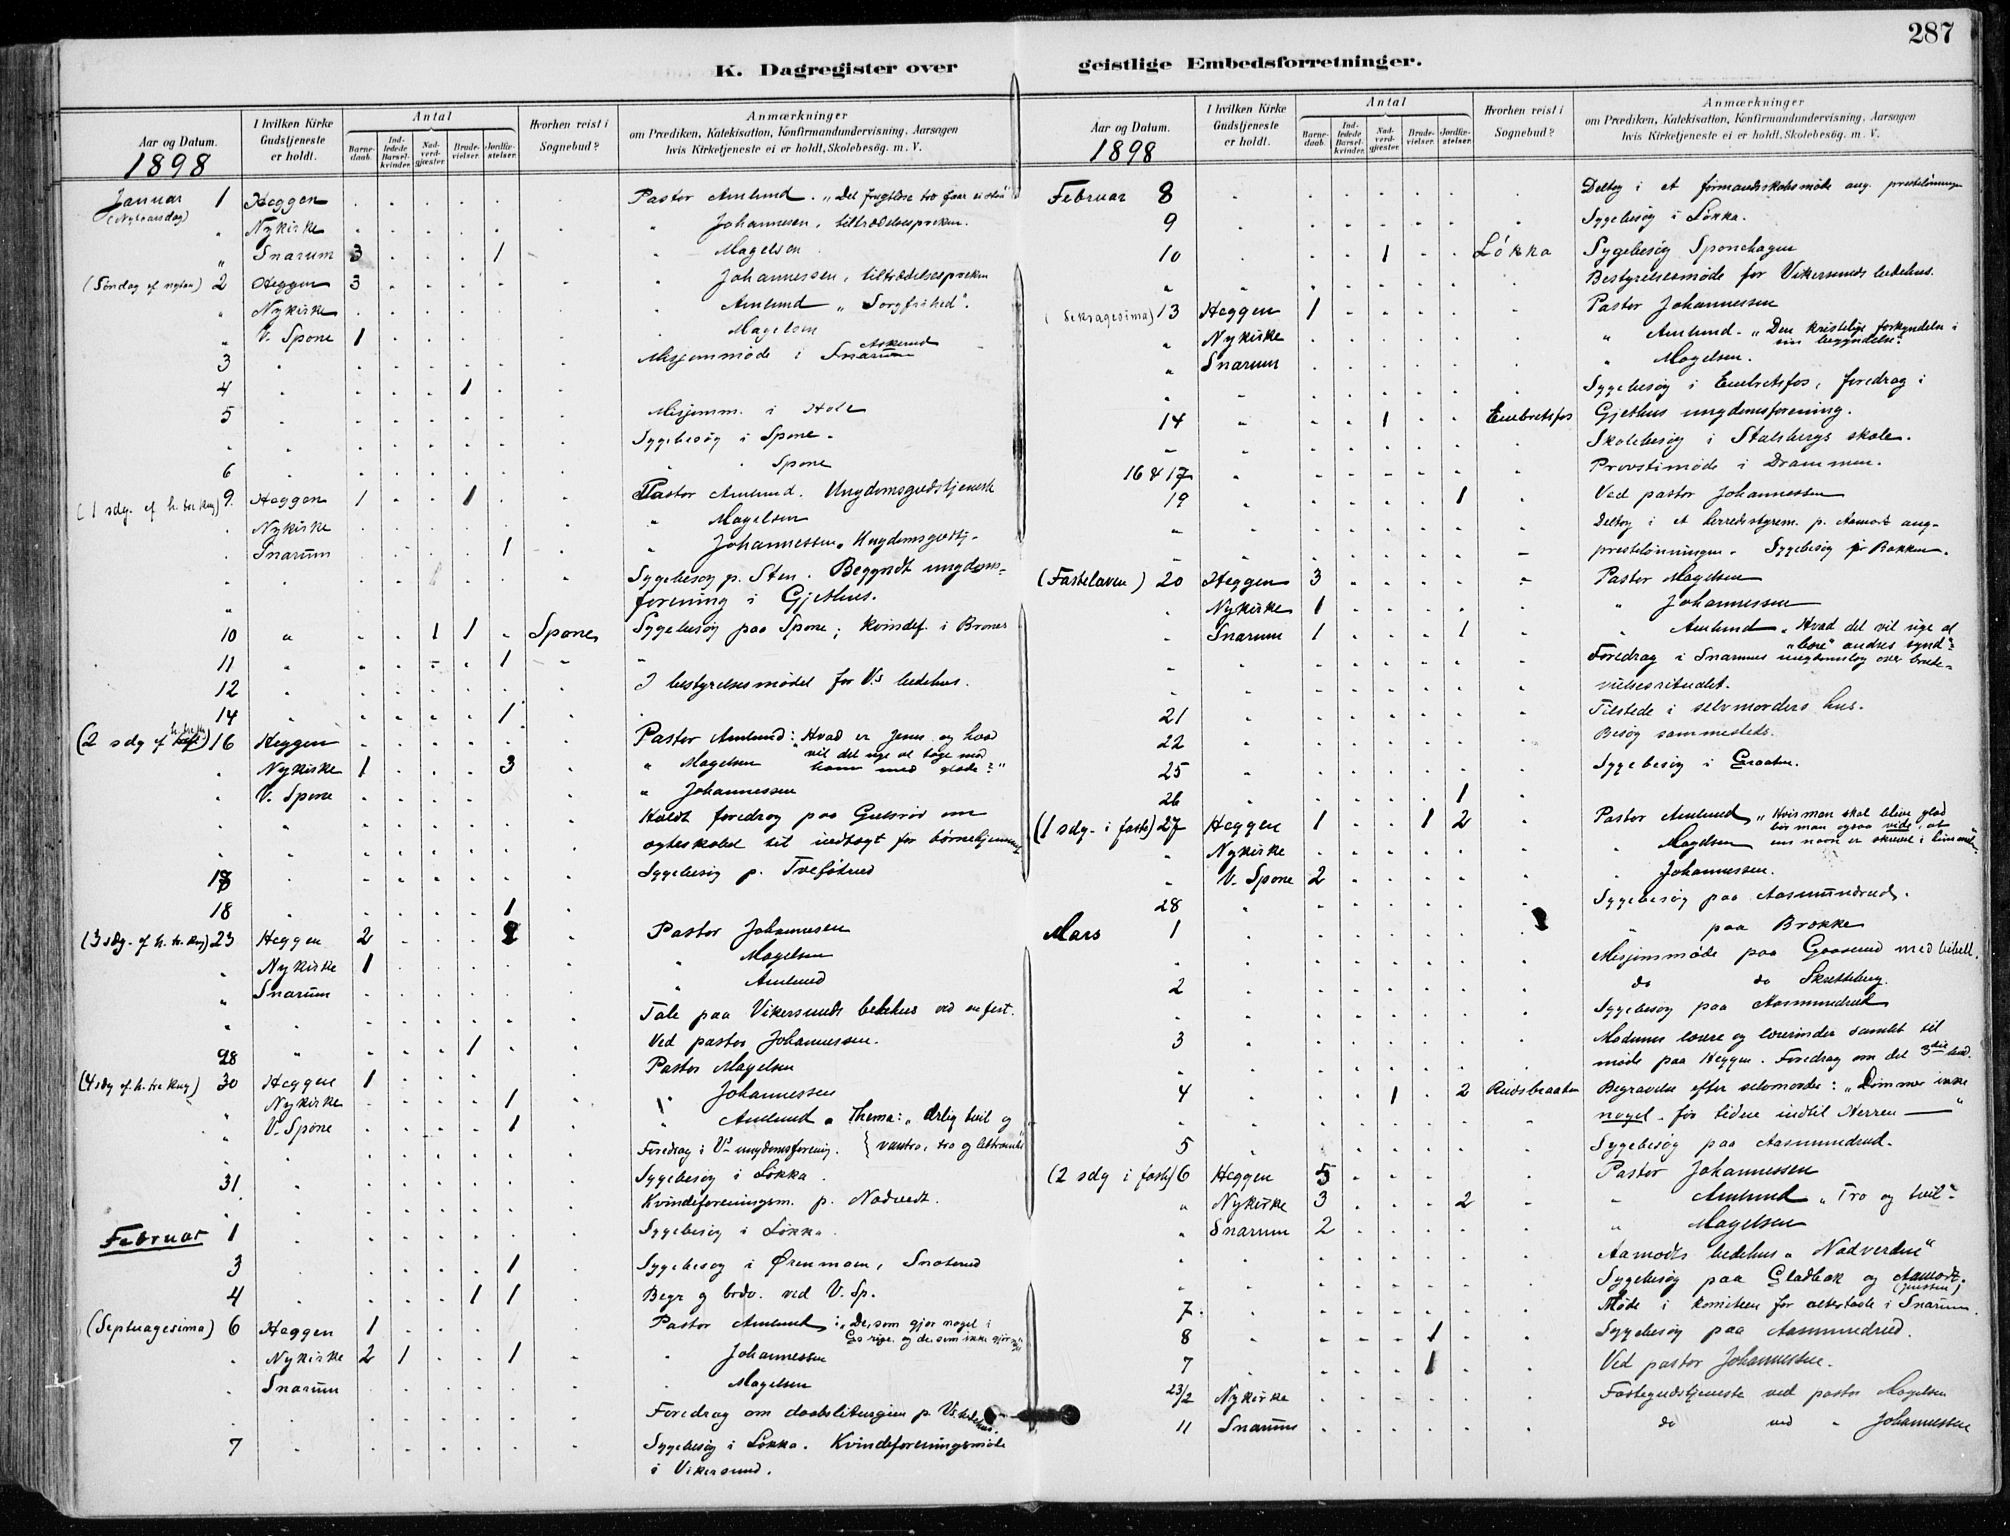 287
K. Dagregister over
geistlige Embedsforretninger.
Aar og Datum.
1898
I hvilken Kirke Gudstjeneste er holdt.
Antal
Barnedaab.
Indledede Barselkvinder.
Nadverdgjæster.
Brudevielser.
Jordfæstelser.
Hvorhen reist i Sognebud?
Anmærkninger
om Prædiken, Katekisation, Konfirmandundervisning, Aarsagen
hvis Kirketjeneste ei er holdt, Skolebesög. m. V.
Januar 1 Heggen Pastor Amlund. „Det frugtløse
(Nytaarsdag) " Nykirke " Johannesen, tiltrædelsespreken.
" Snarum 3 1 " Magelsen
(Søndag ef nytaar) 2 Heggen 3 " Johannessen, tiltrædelsespreken
" Nykirke " Amlund „Sorgfrihed".
" V. Spone 1 Magelsen
3 Misjonmøde i Snarum Askerud
4 1
5 Misjonm. i Hole
Sygebesøg i Spone.
6 " " Spone
(1 sdg. ef h. tre kng) 9. Heggen 1 1 Pastor Amlund. Ungdomsgudstjeneste
Nykirke " Magelsen
Snarum 1 " Johannessen. Ungdomsgudstj.
Sygebesøg p. Sten. Begyndt ungdoms-
forening i Gjethus.
10 " 1 1 Spone Sygebesøg paa Spone; kvindef. i
11 " 1
12 I bestyrelsesmødet for V.s bedehus.
14 1
(2 sdg ef h. tre k) 16 Heggen Pastor Amlund: „Hvad er Jesus og hvad
Nykirke 1 3 " Magelsen vil det sige at tage mod
ham med glæde?"
V. Spone " Johannessen
Holdt foredrag paa Gulsrud om
til indtægt for børnehjemmet
Sygebesøg p.
18 1
(3 sdg. ef h. tr. kng) 23 Heggen 2 2 Pastor Johannesen
" Nykirke 1 " Magelsen
" Snarum " Amlund
" Tale paa Vikersunds bedehus ved en fest.
28 " 1 Ved pastor Johannessen.
Pastor Magelsen
(4 sdg ef. h. tre kng) 30 Heggen 1 " Johannessen
" Nykirke 1
" V. Spone 1 " Amlund „Thema: „ærlig tvil og
Foredrag i Vs ungdomsforening. vantro, tro og lettroenhed
31 Sygebesøg i Løkka
Kvindeforeningsm. p. Nadvedt.
Februar 1 Sygebesøg i Løkka.
3 1 Sygebesøg i Ørenmoen, Snoterud
4 1 1 Begr g brdv. ved V. Sp.
(Septuagesima) 6 Heggen 1 Pastor Amlund: „De, som gjør noget i
Gs rige og de, som ikke gjør
" Nykirke 2 1 1 " Johannessen
Snarum " Magelsen
Foredrag om daabsliturgien p. Vs. bedehus.
7 Sygebesøg i Løkka. Kvindeforeningsmøde
i Vikersund.
Aar og Datum.
1898
I hvilken Kirke Gudstjeneste er holdt.
Antal
Barnedaab.
Indledede Barselkvinder.
Nadverdgjæster.
Brudevielser.
Jordfæstelser.
Hvorhen reist i Sognebud?
Anmærkninger
om Prædiken, Katekisation, Konfirmandundervisning, Aarsagen
hvis Kirketjeneste ei er holdt, Skolebesög. m. V.
Februar 8 Deltog i et formandsskabsmøde ang. prestelønningen
9 Sygebesøg i Løkka.
10 1 Løkka Sygebesøg Sponehagen
" Bestyrelsesmøde for Vikersunds bedehus.
(Seksagesima) 13 Heggen 1 Pastor Johannessen
" Nykirke " Amlund. „Den kristelige forkyndelse i
sin begyndelse".
" Snarum " Magelsen.
Sygebesøg i Embretsfos, foredrag i
14 1 Embretsfos Gjethus ungdomsforening.
Skolebesøg i Stalsbergs skole.
16 & 17 Provstimøde i Drammen.
19 1 Ved pastor Johannessen
Deltog i et herredsstyrem. p. Aamot ang.
prestelønningen. Sygebesøg i Bakken.
(Fastelaven) 20 Heggen 3 Pastor Magelsen
Nykirke 1 " Johannessen
Snarum 1 1 " Amlund „Hvad det vil sige at
„bære" andres synd".
Foredrag i Snarums ungdomslag over brude-
vielsesritualet.
21 Tilstede i selvmorders hus.
22 Besøg sammesteds.
25 Sygebesøg i Graaten.
26 1
(1 sdg. i faste) 27 Heggen 1 1 2 Pastor Amlund „Hvis man skal blive glad
bør man ogsaa vide, at
" Nykirke " Magelsen ens navn er skrevet i himmelen".
" V. Spone 2 " Johannessen.
28 Sygebesøg paa Aasmundrud.
Mars 1 " paa Brokke
Misjonsmøde paa Gaaserud med bibell.
2 do do Skretteberg.
Sygebesøg paa Aasmundrud
3 Modums lærere og lærerinder samlet til
møde paa Heggen. Foredrag om det 3die bud.
4 1 2 Rudsbraaten Begravelse efter selvmorder: „Dømmer ikke
noget før tiden indtil Herren —"
5 Sygebesøg paa Aasmundrud.
(2 sdg i faste) 6 Heggen 5 Pastor Johannessen
" Nykirke 3 2 " Amlund „Tro og tvil"
" Snarum 2 " Magelsen
Aamodts bedehus „Nadverden"
Sygebesøg paa Gladbak og Aamodt.
7 Møde i komiteen for altertavle i Snarum
8 1 Sygebesøg paa Aasmundrud.
7 1 Ved pastor Johannessen.
23/2 Nykirke Fastegudstjeneste ved pastor Magelsen
11 Snarum do ved " Johannessen